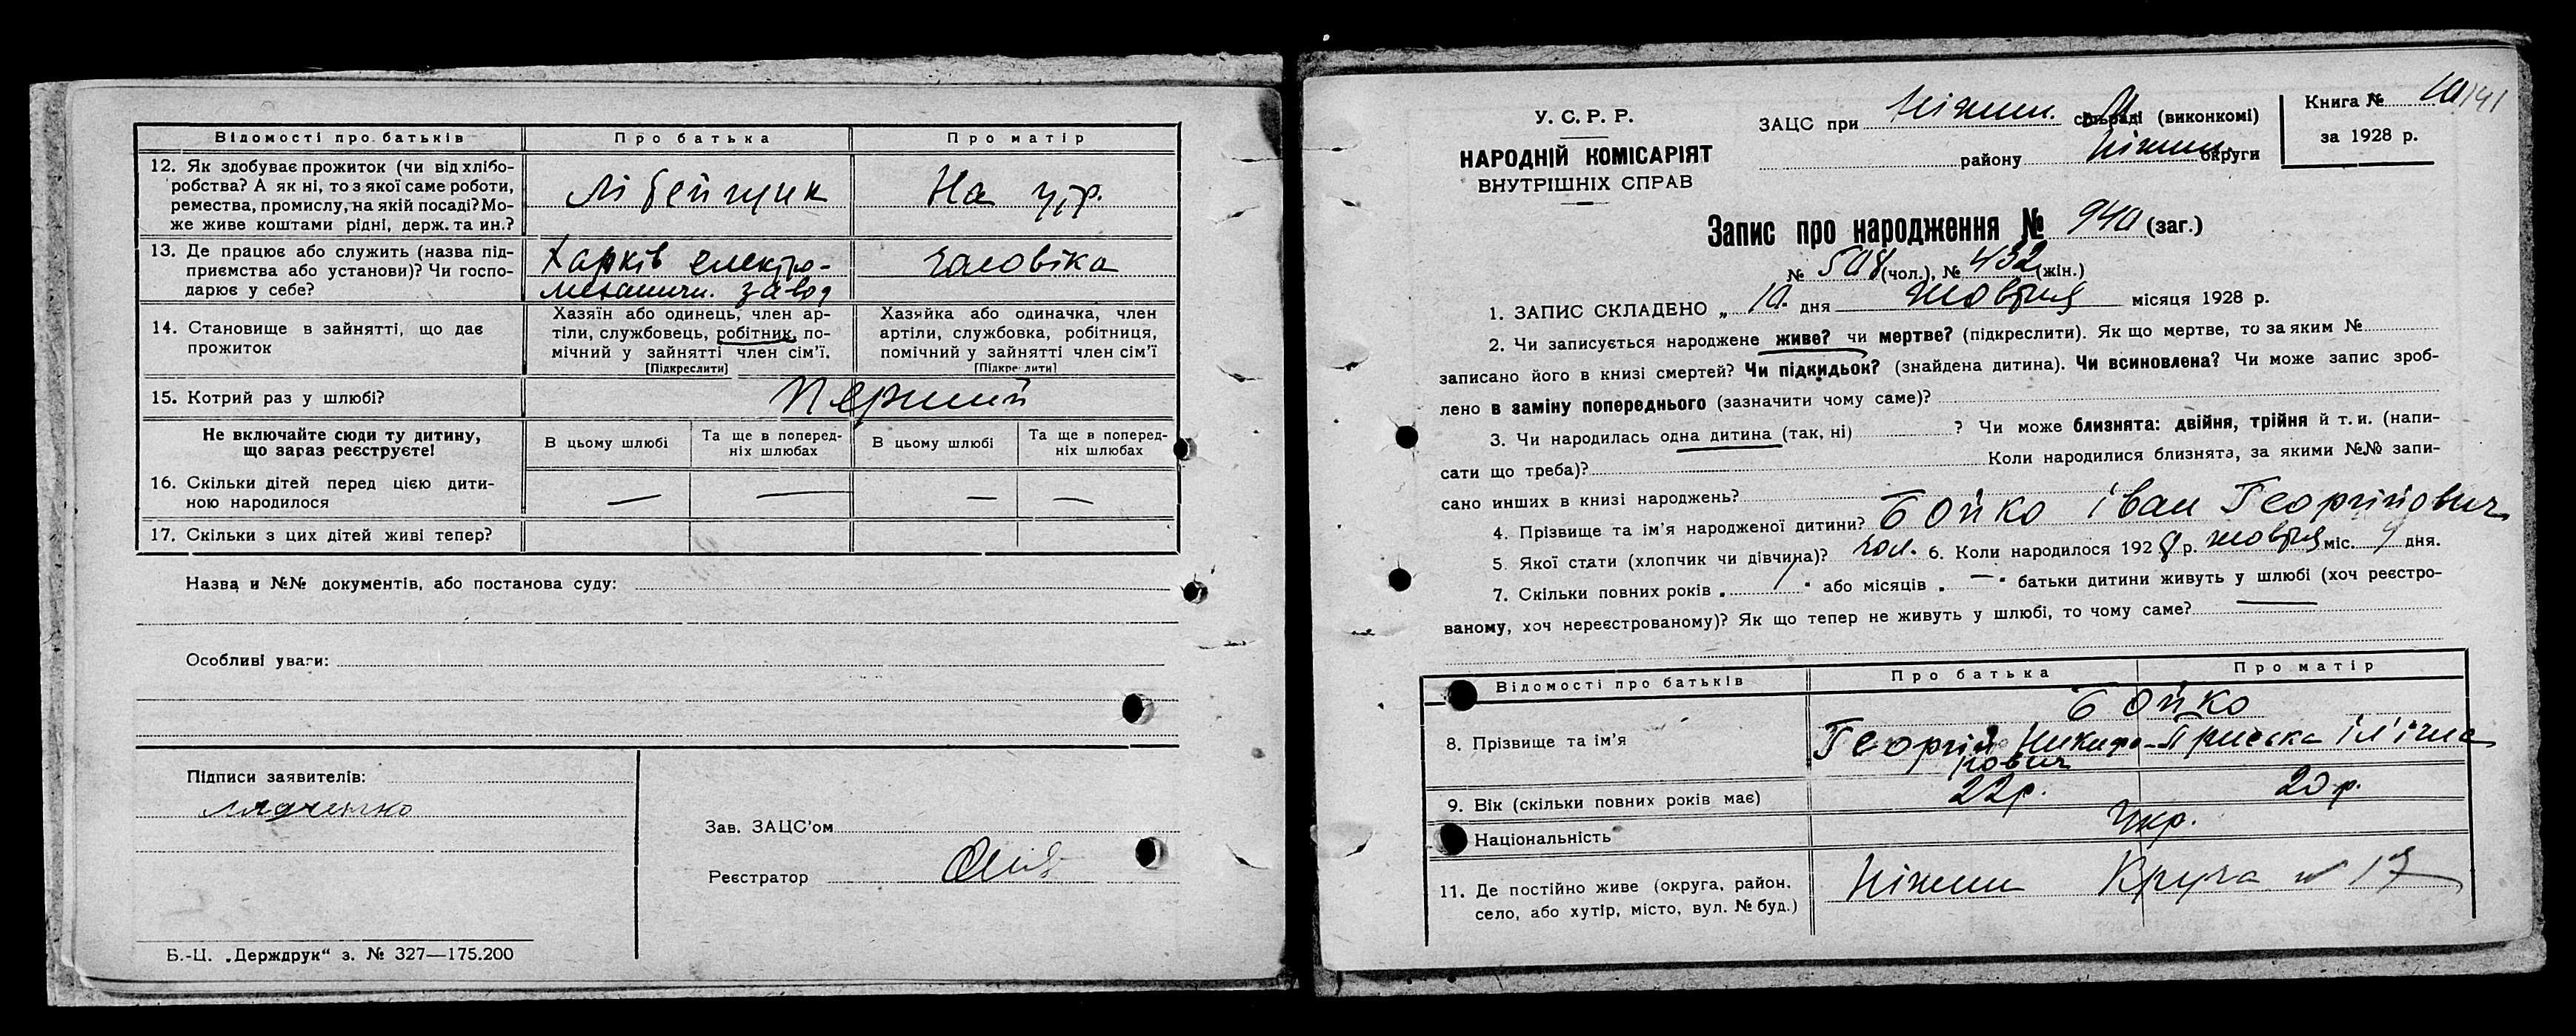 Відомості про батьків
Про батька
Про матір
12. Як здобуває прожиток (чи від хлібо-
робства? А як ні, то з якої саме роботи,
ремества, промислу, на якій посаді? Мо-
же живе коштами рідні, держ. та ин.?
На утр.
13. Де працює або служить (назва під-
приємства або установи)? Чи госпо-
дарює у себе?
Харків електро-
механичн. завод
чоловіка
14. Становище в зайнятті, що дає
прожиток
Хазяїн або одинець, член ар-
тіли, службовець, робітник, по-
мічний у зайнятті член сім'ї.
[Підкреслити]
Хазяйка або одиначка, член
артіли, службовка, робітниця,
помічний у зайнятті член сім'ї
[Підкреслити]
15. Котрий раз у шлюбі?
Перший
Не включайте сюди ту дитину,
що зараз реєструєте!
В цьому шлюбі
Та ще в поперед-
ніх шлюбах
В цьому шлюбі
Та ще в поперед-
ніх шлюбах
16. Скільки дітей перед цією дити-
ною народилося
— — — —
17. Скільки з цих дітей живі тепер?
Назва и №№ документів, або постанова суду:
Особливі уваги:
Підписи заявителів:
Зав. ЗАЦС'ом
Реєстратор
Б.-Ц. „Держдрук“ з. № 327—175.200
У. С. Р. Р.
НАРОДНІЙ КОМІСАРІЯТ
ВНУТРІШНІХ СПРАВ
ЗАЦС при Ніжин. сільраді (виконкомі)
району Ніжин. округи
Книга № 10
141
за 1928 р.
Запис про народження № 940 (заг.)
№ 508 (чол.), № 432 (жін.)
1. ЗАПИС СКЛАДЕНО „ 10. дня жовтня місяця 1928 р.
2. Чи записується народжене живе? чи мертве? (підкреслити). Як що мертве, то за яким №
записано його в книзі смертей? Чи підкидьок? (знайдена дитина). Чи всиновлена? Чи може запис зроб-
лено в заміну попереднього (зазначити чому саме)?
3. Чи народилась одна дитина (так, ні) ? Чи може близнята: двійня, трійня й т. и. (напи-
сати що треба)? Коли народилися близнята, за якими №№ запи-
сано инших в книзі народжень?
4. Прізвище та ім'я народженої дитини? Бойко Іван Георгійович
5. Якої стати (хлопчик чи дівчина)? чол. 6. Коли народилося 1928 р. жовтня міс. 9 дня.
7. Скільки повних років „ 1 " або місяців „ — " батьки дитини живуть у шлюбі (хоч реєстро-
ваному, хоч нереєстрованому)? Як що тепер не живуть у шлюбі, то чому саме?
Відомості про батьків
Про батька
Про матір
8. Прізвище та ім'я
Бойко
Георгій Никифо-
рович
Приська Іллічна
9. Вік (скільки повних років має)
22 р.
20 р.
Національність
Укр.
11. Де постійно живе (округа, район,
село, або хутір, місто, вул. № буд.)
Ніжин Круча № 17